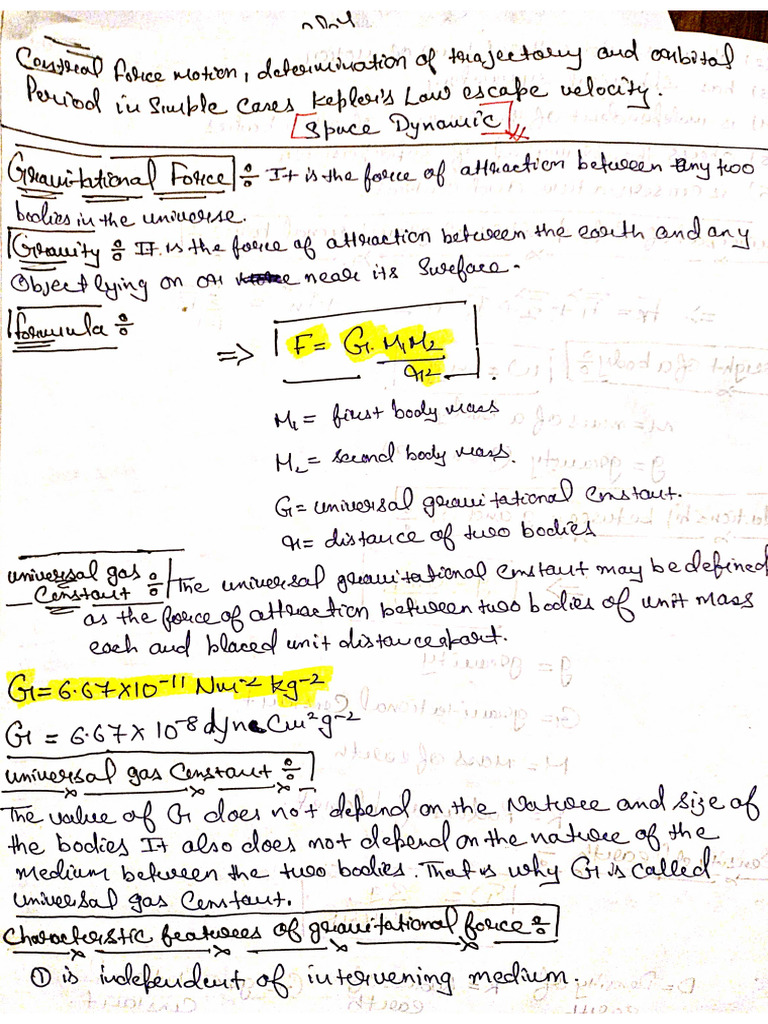 Central force motion, determination of trajectory and orbital
Period in Simple Cases Kepler's Law escape velocity.
[Space Dynamic]
Gravitational Force ÷ It is the force of attraction between any two
bodies in the universe.
Gravity ÷ It is the force of attraction between the earth and any
Object lying on or near its Surface.
formula ÷
=> F = G. M₁M₂
r²
M₁ = first body mass
M₂ = second body mass.
G = universal gravitational Constant.
r = distance of two bodies
universal gas
Constant ÷ The universal gravitational Constant may be defined
as the force of attraction between two bodies of unit mass
each and placed unit distance apart.
G = 6.67 X 10⁻¹¹ Nm⁻² kg⁻²
G = 6.67 X 10⁻⁸ dyne Cm² g⁻²
universal gas Constant ÷
The value of G does not depend on the Nature and Size of
the bodies It also does not depend on the nature of the
medium between the two bodies. That is why G is called
universal gas Constant.
Characteristic features of gravitational force ÷
① is independent of intervening medium.